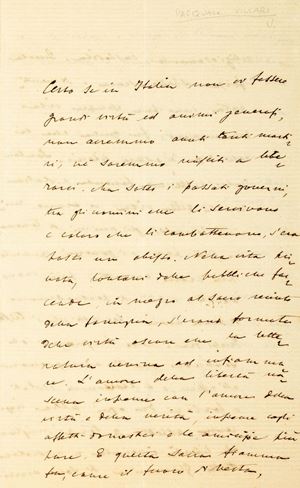 PASQUALE VILLARI
Certo se in Italia non vi fossero
grandi virtù ed animi generosi,
non avremmo avuti tanti marti-
ri, nè saremmo riusciti a libe-
rarci. Ma sotto i passati governi,
tra gli uomini che li servivano
e coloro che li combattevano, s'era
fatto un abisso. Nella vita pri-
vata, lontani dalle pubbliche fac-
cende, in mezzo al sacro recinto
della famiglia, s'erano formate
delle virtù oscure che la lette-
ratura veniva ad infiamma-
re. L'amore della libertà na-
sceva insieme con l'amore della
virtù e della verità insieme cogli
affetti domestici e le amicizie più
pure. E questa sacra fiamma
fu, come il fuoco di Vesta,